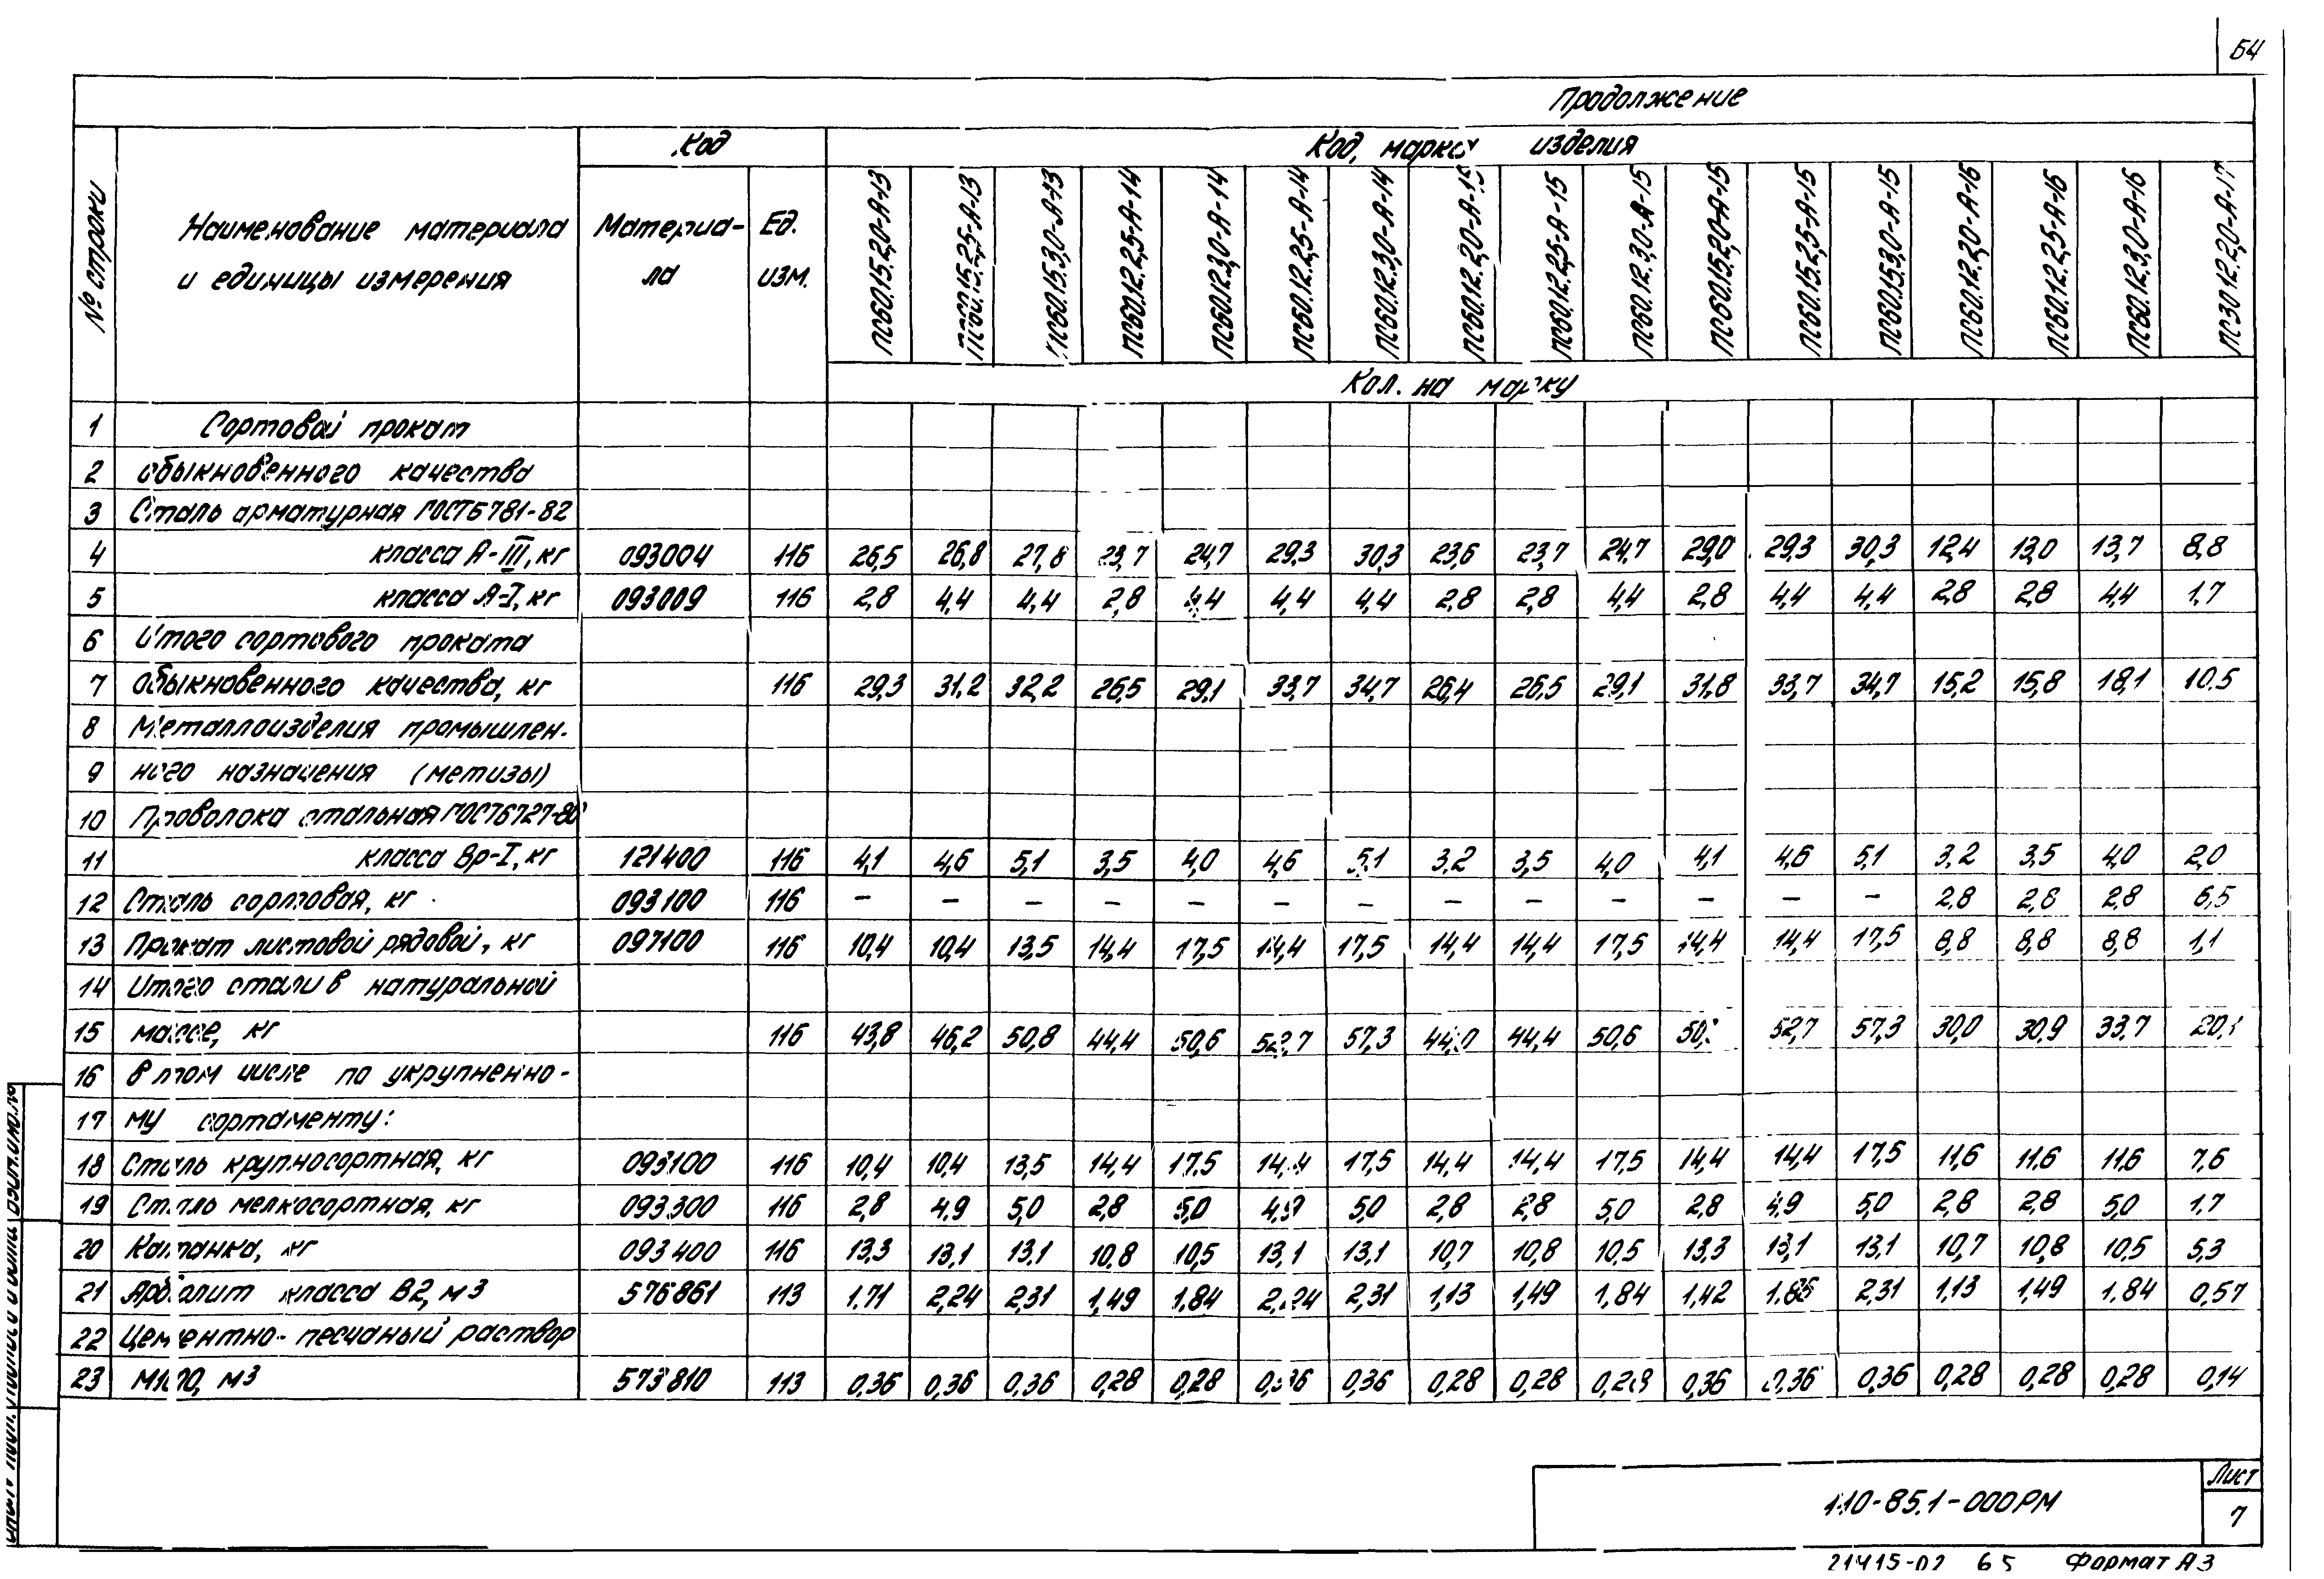 64
Продолжение
№ строки
Наименование материала и единицы измерения
Код
Материа-
ла
Ед.
изм.
Код, марка изделия
ПС60.15.2,0-А-13
ПС60.15.2,5-А-13
ПС60.15.3,0-А-13
ПС60.12.2,5-А-14
ПС60.12.3,0-А-14
ПС60.12.2,5-А-14
ПС60.12.3,0-А-14
ПС60.12.2,0-А-15
ПС60.12.2,5-А-15
ПС60.12.3,0-А-15
ПС60.15.2,0-А-15
ПС60.15.2,5-А-15
ПС60.15.3,0-А-15
ПС60.12.2,0-А-16
ПС60.12.2,5-А-16
ПС60.12.3,0-А-16
ПС30.12.2,0-А-17
Кол. на марку
1 Сортовой прокат
2 обыкновенного качества
3 Сталь арматурная ГОСТ5781-82
4 класса А-III, кг 093004 116 26,5 26,8 27,8 23,7 24,7 29,3 30,3 23,6 23,7 24,7 29,0 29,3 30,3 12,4 13,0 13,7 8,8
5 класса А-I, кг 093009 116 2,8 4,4 4,4 2,8 4,4 4,4 4,4 2,8 2,8 4,4 2,8 4,4 4,4 2,8 2,8 4,4 1,7
6 Итого сортового проката
7 обыкновенного качества, кг 116 29,3 31,2 32,2 26,5 29,1 33,7 34,7 26,4 26,5 29,1 31,8 33,7 34,7 15,2 15,8 18,1 10,5
8 Металлоизделия промышлен-
9 ного назначения (метизы)
10 Проволока стальная ГОСТ6727-80
11 класса Вр-I, кг 121400 116 4,1 4,6 5,1 3,5 4,0 4,6 5,1 3,2 3,5 4,0 4,1 4,6 5,1 3,2 3,5 4,0 2,0
12 Сталь сортовая, кг 093100 116 – – – – – – – – – – – – – 2,8 2,8 2,8 6,5
13 Прокат листовой рядовой, кг 097100 116 10,4 10,4 13,5 14,4 17,5 14,4 17,5 14,4 14,4 17,5 14,4 14,4 17,5 8,8 8,8 8,8 1,1
14 Итого стали в натуральной
15 массе, кг 116 43,8 46,2 50,8 44,4 50,6 52,7 57,3 44,0 44,4 50,6 52,7 57,3 30,0 30,9 33,7
16 в том числе по укрупненно-
17 му сортаменту:
18 Сталь крупносортная, кг 093100 116 10,4 10,4 13,5 14,4 17,5 14,4 17,5 14,4 14,4 17,5 14,4 14,4 17,5 11,6 11,6 11,6 7,6
19 Сталь мелкосортная, кг 093300 116 2,8 4,9 5,0 2,8 5,0 4,9 5,0 2,8 2,8 5,0 2,8 4,9 5,0 2,8 2,8 5,0 1,7
20 Катанка, кг 093400 116 13,3 13,1 13,1 10,8 10,5 13,1 13,1 10,7 10,8 10,5 13,3 13,1 13,1 10,7 10,8 10,5 5,3
21 Арболит класса В2, м3 576861 113 1,71 2,24 2,31 1,49 1,84 2,24 2,31 1,13 1,49 1,84 1,42 1,86 2,31 1,13 1,49 1,84 0,57
22 Цементно-песчаный раствор
23 М100, м3 573810 113 0,36 0,36 0,36 0,28 0,28 0,36 0,36 0,28 0,28 0,28 0,36 0,36 0,36 0,28 0,28 0,28 0,14
1.10-85.1-000РМ
Лист
7
21415-02 65 Формат А3